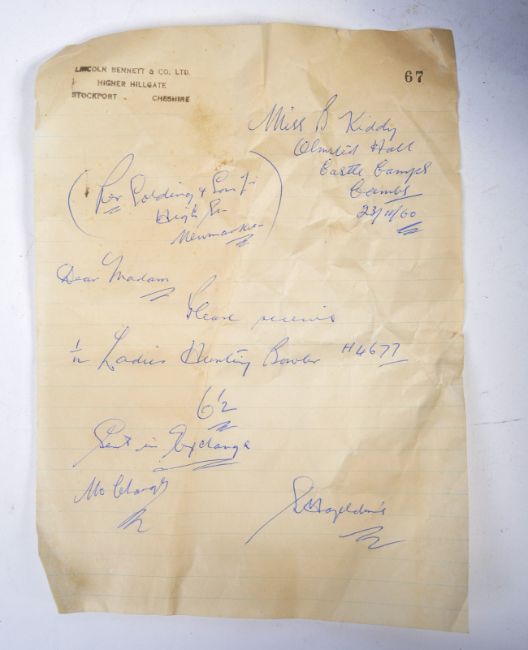 LINCOLN BENNETT & CO. LTD.
HIGHER HILLGATE
STOCKPORT CHESHIRE
67
Miss B Kiddy
Olmsted Hall
Castle Camps
Cambs
23/11/60
(Per Golding & Son Ltd
High St
Newmarket)
Dear Madam
Please receive
1/12 Ladies Hunting Bowler H4677
6 1/2
Sent in Exchange
No Charge